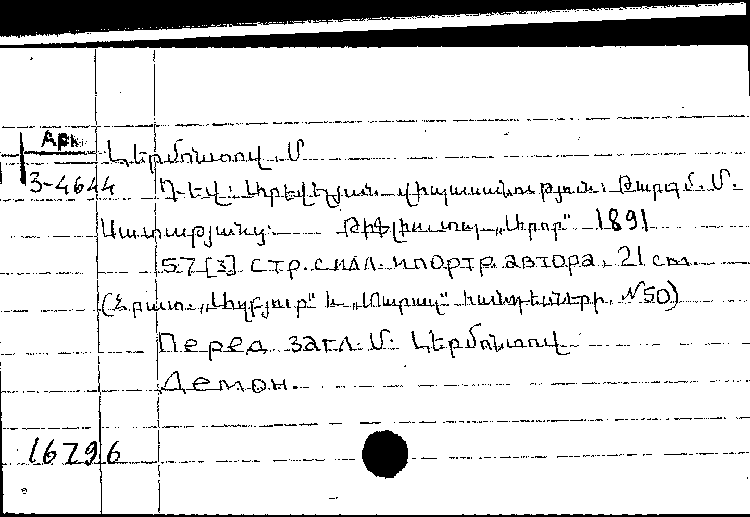 Арм
Լերմոնտով, Մ.
3-4644 Դ-եվ: Արևելյան վիպասանություն: Թարգմ. Մ.
Սադաթյանց: Թիֆլիս, տպ. „Արոր“ 1891
57 [3] стр. с илл. и портр. автора, 21 см.
(Հրատ. „Աղբյուր“ և „Տարազ“ հանդեսների, N50)
Перед загл. Մ. Լերմոնտով
Демон.
16796